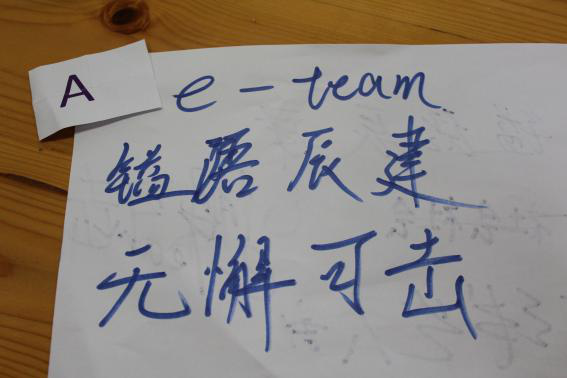 A
e-team
镒 辰建
无懈可击